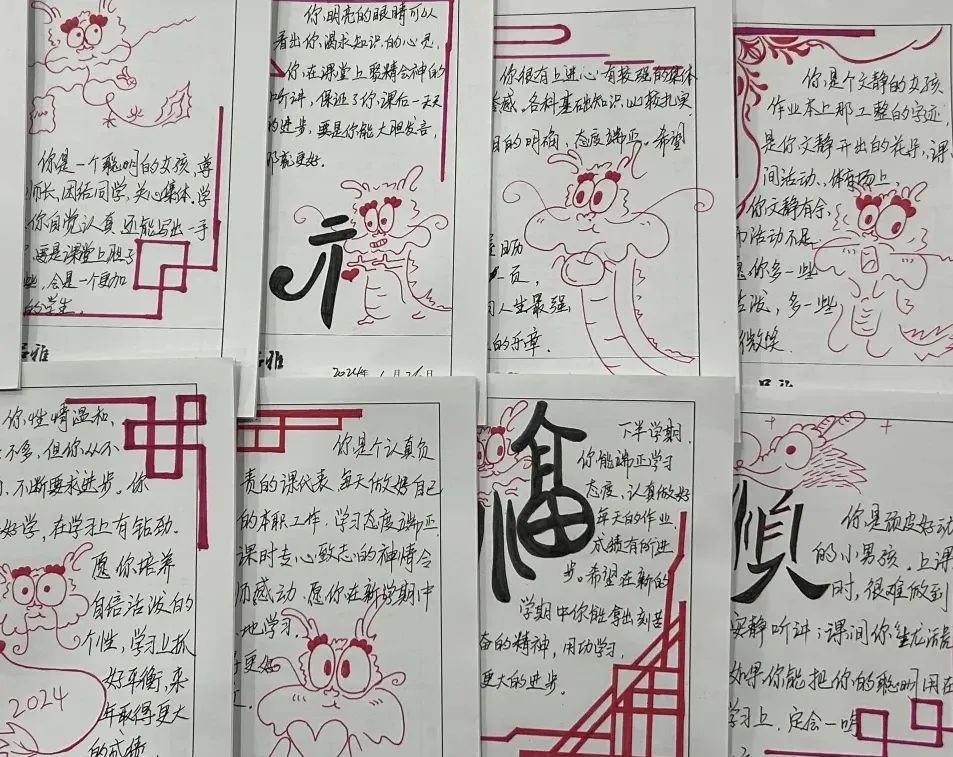 你是一个聪明的女孩,尊
师长,团结同学,关心集体。学
你自觉认真,还能写出一手
要是课堂上胆子
些,会是一个更加
的学生。
你,明亮的眼睛可以
看出你,渴求知识的心灵,
你,在课堂上聚精会神的
听讲,保证了你,课后一天天
的进步,要是你能大胆发言,
那就更好。
2024年1月26日
你很有上进心,有较强的集体
各科基础知识比较扎实
目的明确,态度端正。希望
一页,
人生最强
的乐章。
你,是个文静的女孩
作业本上那工整的字迹,
是你,文静开出的花朵,课
间活动、体育场上,
你文静有余,
而活动不足
愿你多一些
活泼,多一些
微笑。
你,性情温和,
不多,但你从不
不断要求进步。你
好学,在学习上有钻劲。
愿你培养
自信活泼的
个性,学习上抓
好平衡,来
年取得更大
的成绩。
2024
你,是个认真负
责的课代表,每天做好自己
的本职工作,学习态度端正
课时专心致志的神情令
而感动。愿你在新学期中
地学习,
更好
福
下半学期,
你能端正学习
态度,认真做好
每天的作业,
成绩有所进
步。希望在新的
学期中你能拿出刻苦
奋的精神,用功学习,
更大的进步。
顺
你,是顽皮好动
的小男孩。上课
时,很难做到
安静听讲;课间你生龙活虎
如果你能把你的聪明用在
学习上,定会一鸣